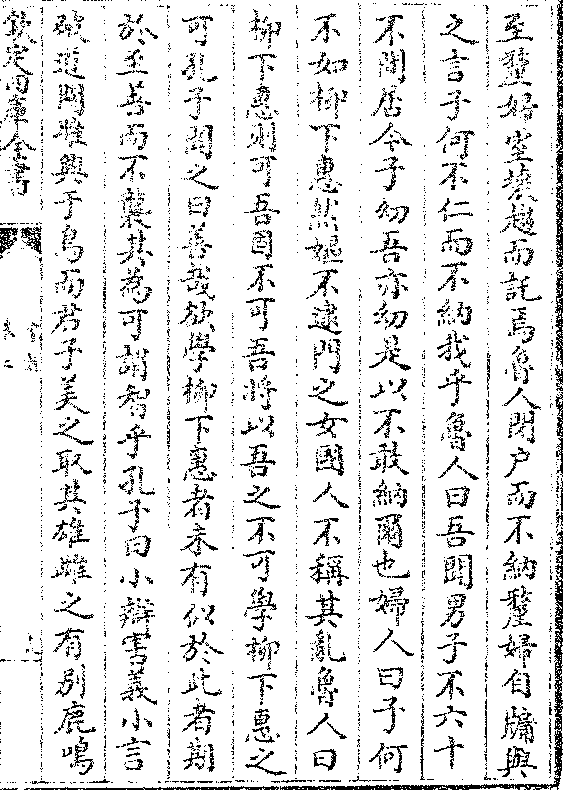 至釐婦室壞趨而託焉魯人閉户而不納釐婦自牖與
之言子何不仁而不納我乎魯人曰吾聞男子不六十
不閒居今子幼吾亦幼是以不敢納爾也婦人曰子何
不如柳下惠然嫗不逮門之女國人不稱其亂魯人曰
柳下惠則可吾固不可吾將以吾之不可學柳下惠之
可孔子聞之曰善哉欲學柳下惠者未有似於此者期
於至善而不襲其為可謂智乎孔子曰小辯害義小言
破道關雎興于鳥而君子美之取其雄雌之有别鹿鳴
欽定四庫全書